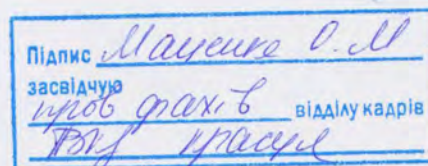 Підпис Маценко О.М
засвідчую
пров фахів відділу кадрів